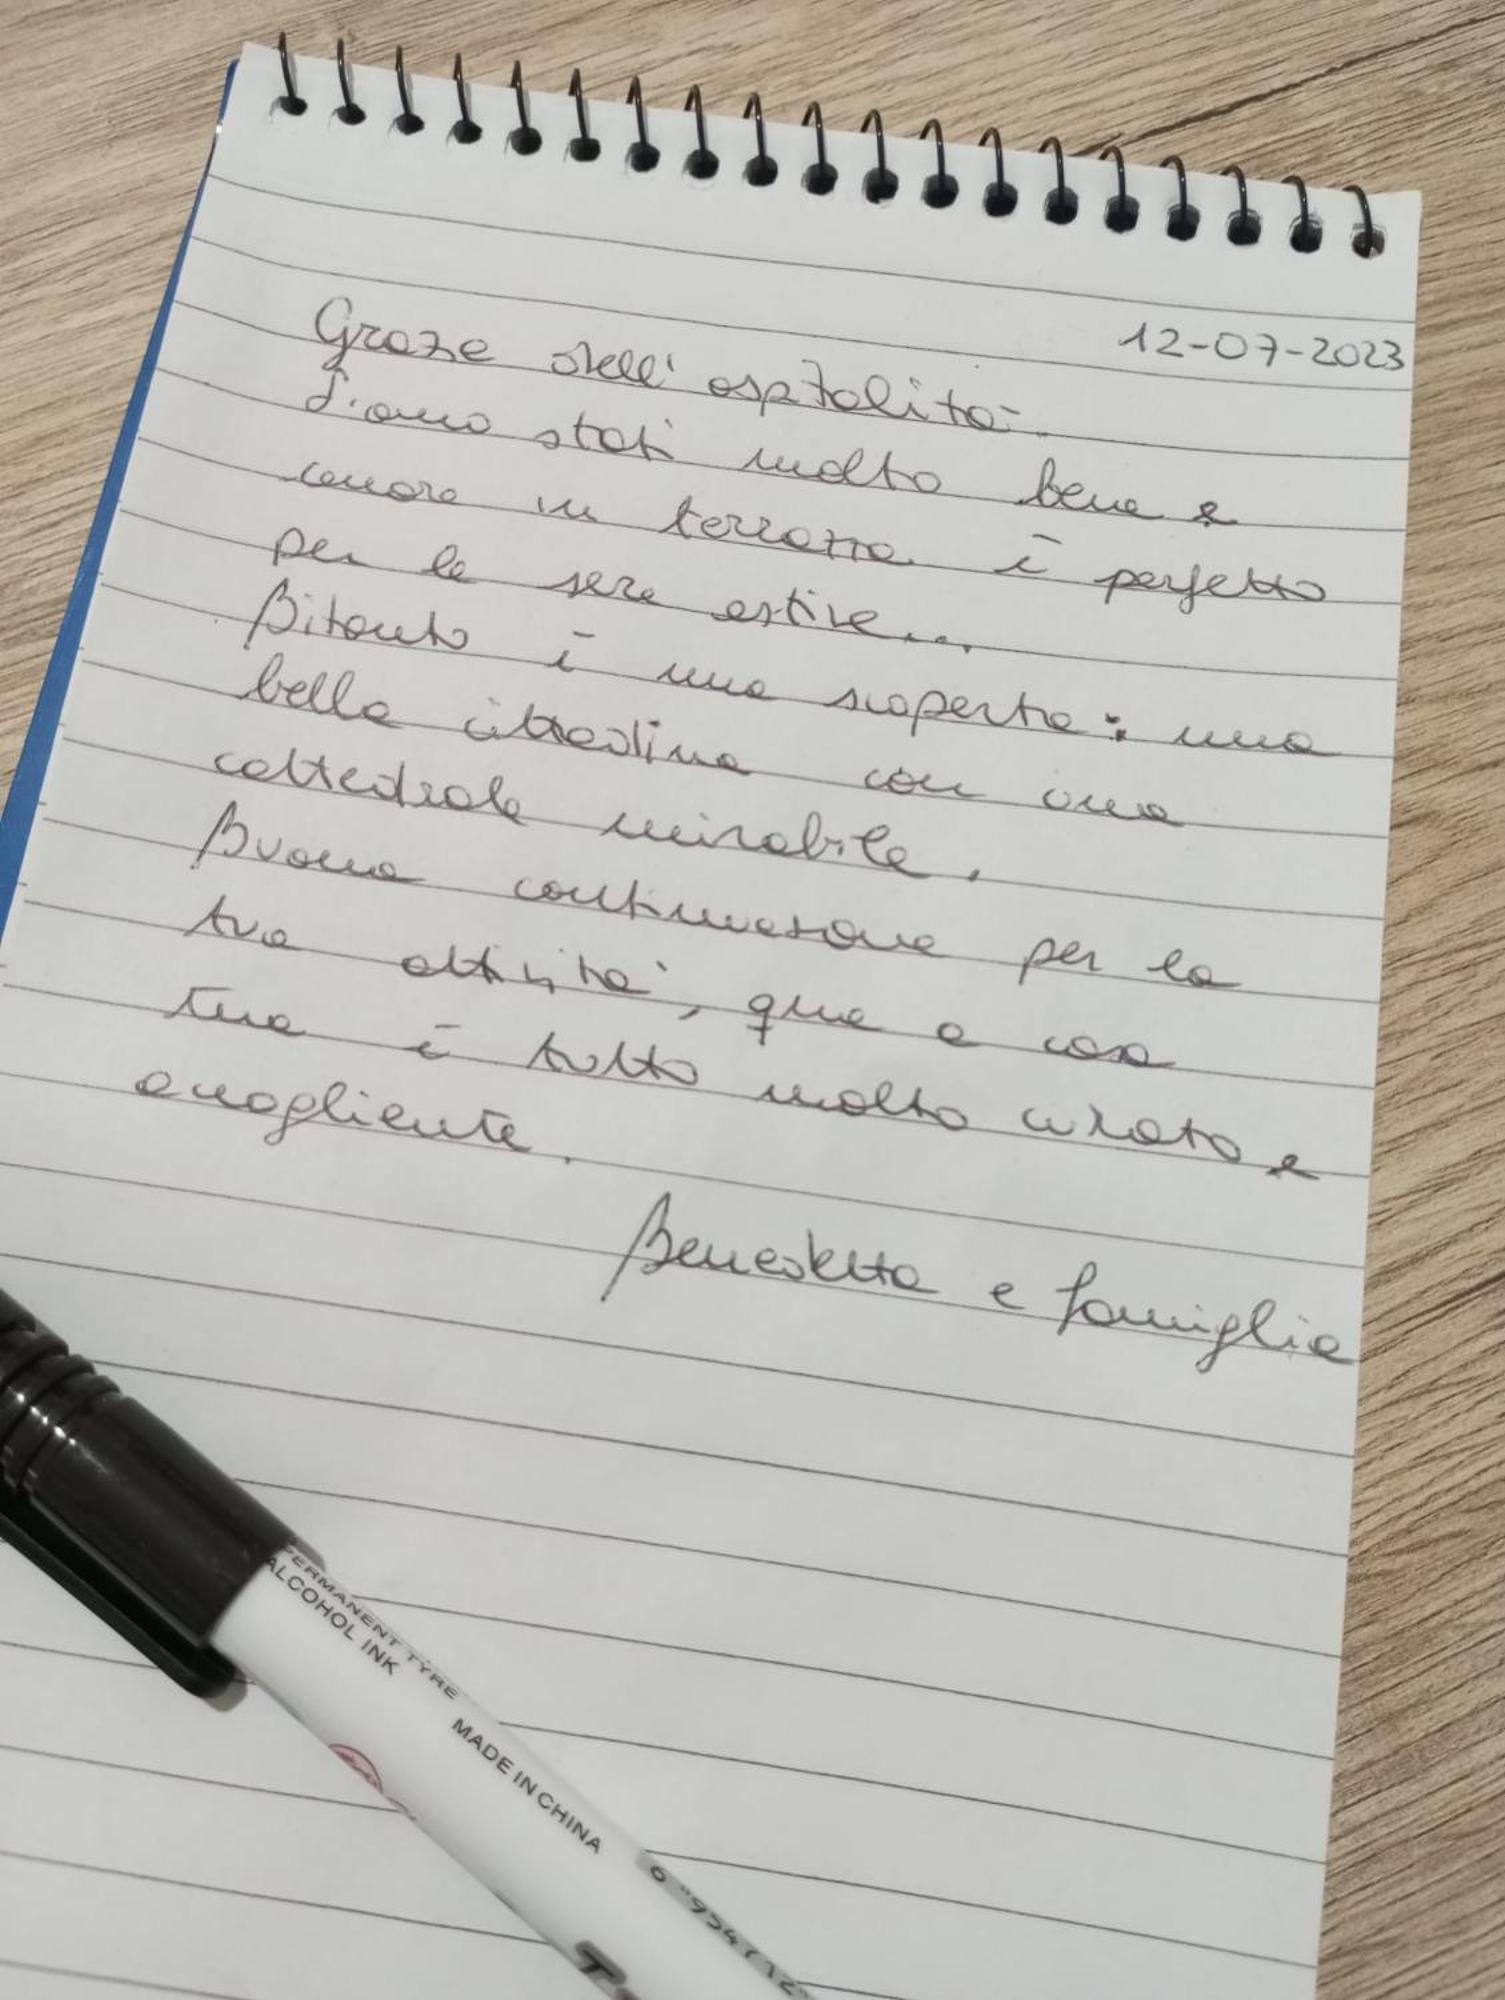 12-07-2023
Grazie dell'ospitalità.
Siamo stati molto bene e
cenare in terrazza è perfetto
per le sere estive...
Bitonto è una scoperta: una
bella cittadina con una
cattedrale mirabile.
Buona continuazione per la
tua attività, qua a casa
tua è tutto molto curato e
accogliente.
Benedetta e famiglia
PERMANENT TYRE
ALCOHOL INK
MADE IN CHINA